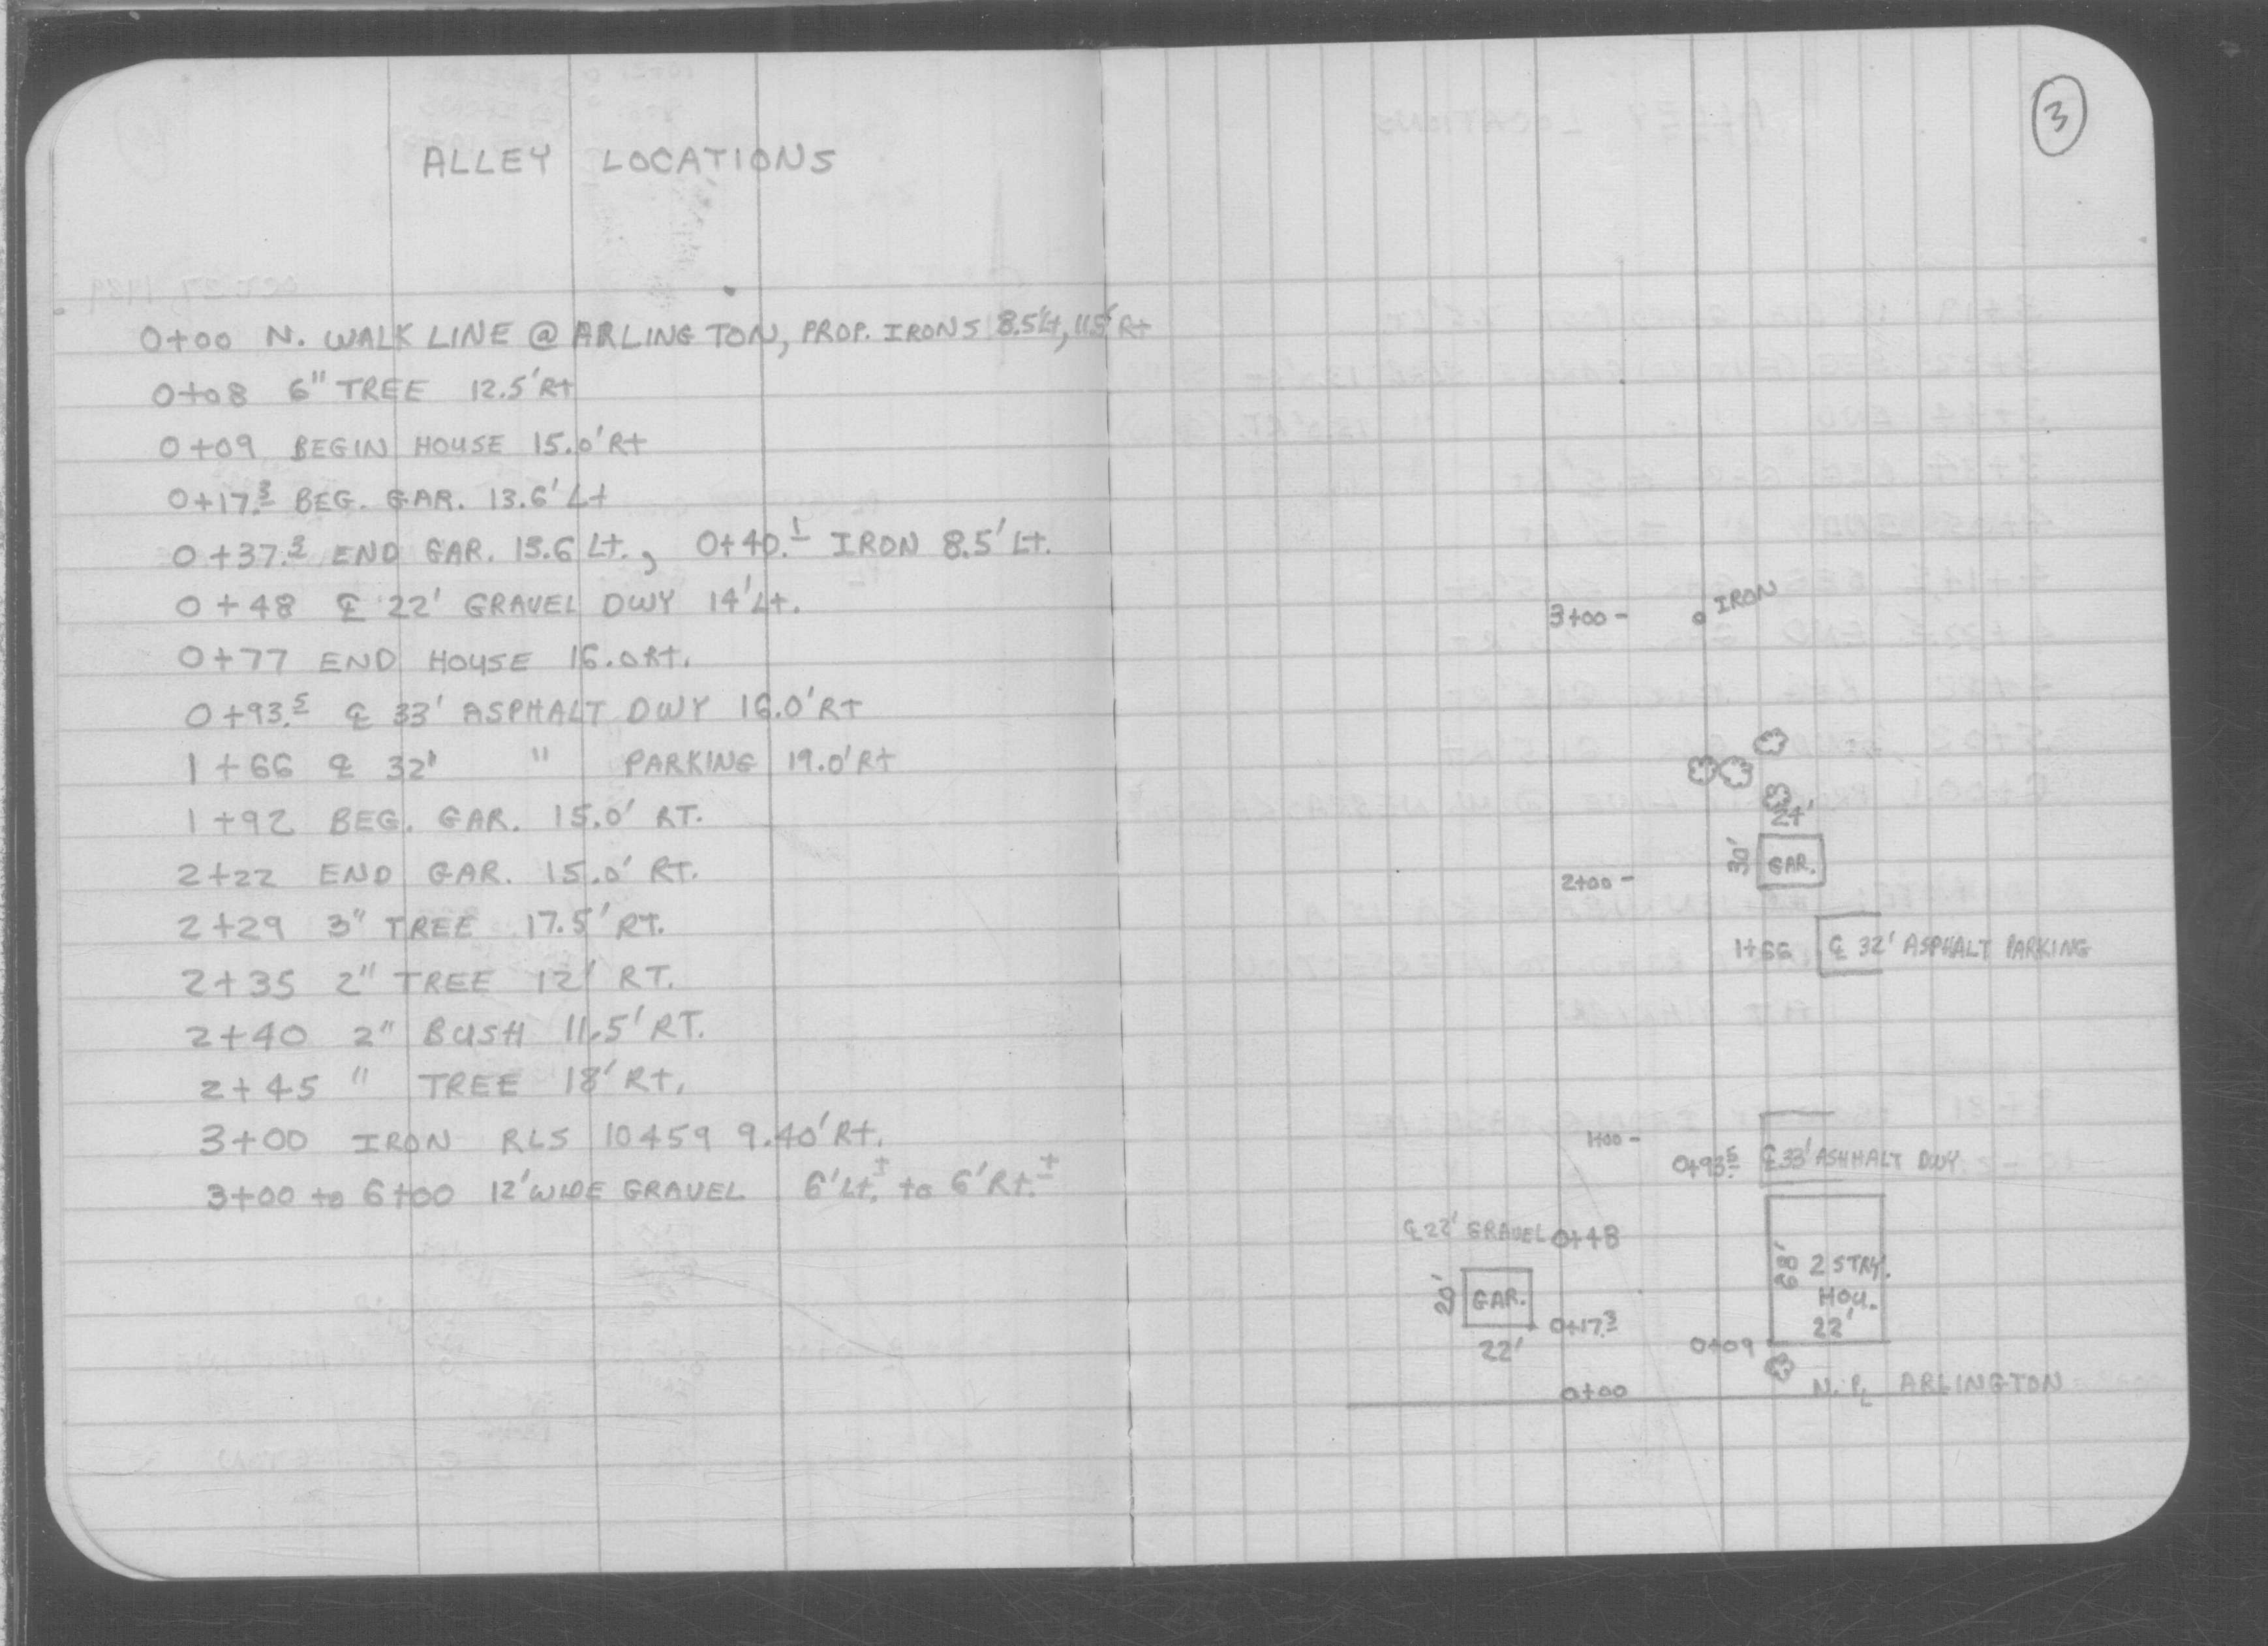 ALLEY LOCATIONS
0+00 N. WALK LINE @ ARLINGTON, PROP. IRONS 8.5'Lt, 11.5' Rt
0+08 6" TREE 12.5' Rt
0+09 BEGIN HOUSE 15.0' Rt
0+17.3 BEG. GAR. 13.6' Lt
0+37.3 END GAR. 13.6 Lt., 0+40.1 IRON 8.5' Lt.
0+48 ℄ 22' GRAVEL DWY 14' Lt.
0+77 END HOUSE 16.0 Rt.
0+93.5 ℄ 33' ASPHALT DWY 16.0' Rt
1+66 ℄ 32' " PARKING 19.0' Rt
1+92 BEG. GAR. 15.0' RT.
2+22 END GAR. 15.0' RT.
2+29 3" TREE 17.5' RT.
2+35 2" TREE 12' RT.
2+40 2" BUSH 11.5' RT.
2+45 " TREE 18' Rt.
3+00 IRON RLS 10459 9.40' Rt.
3+00 to 6+00 12' WIDE GRAVEL 6' Lt.± to 6' Rt.±
3
3+00 - IRON
24'
30' GAR.
2+00 -
1+66 ℄ 32' ASPHALT PARKING
1+00 -
0+93.5 ℄ 33' ASHHALT DWY
℄ 22' GRAVEL 0+48
68' 2 STRY.
20' GAR. HOU.
0+17.3 22'
22' 0+09
0+00 N. PL ARLINGTON